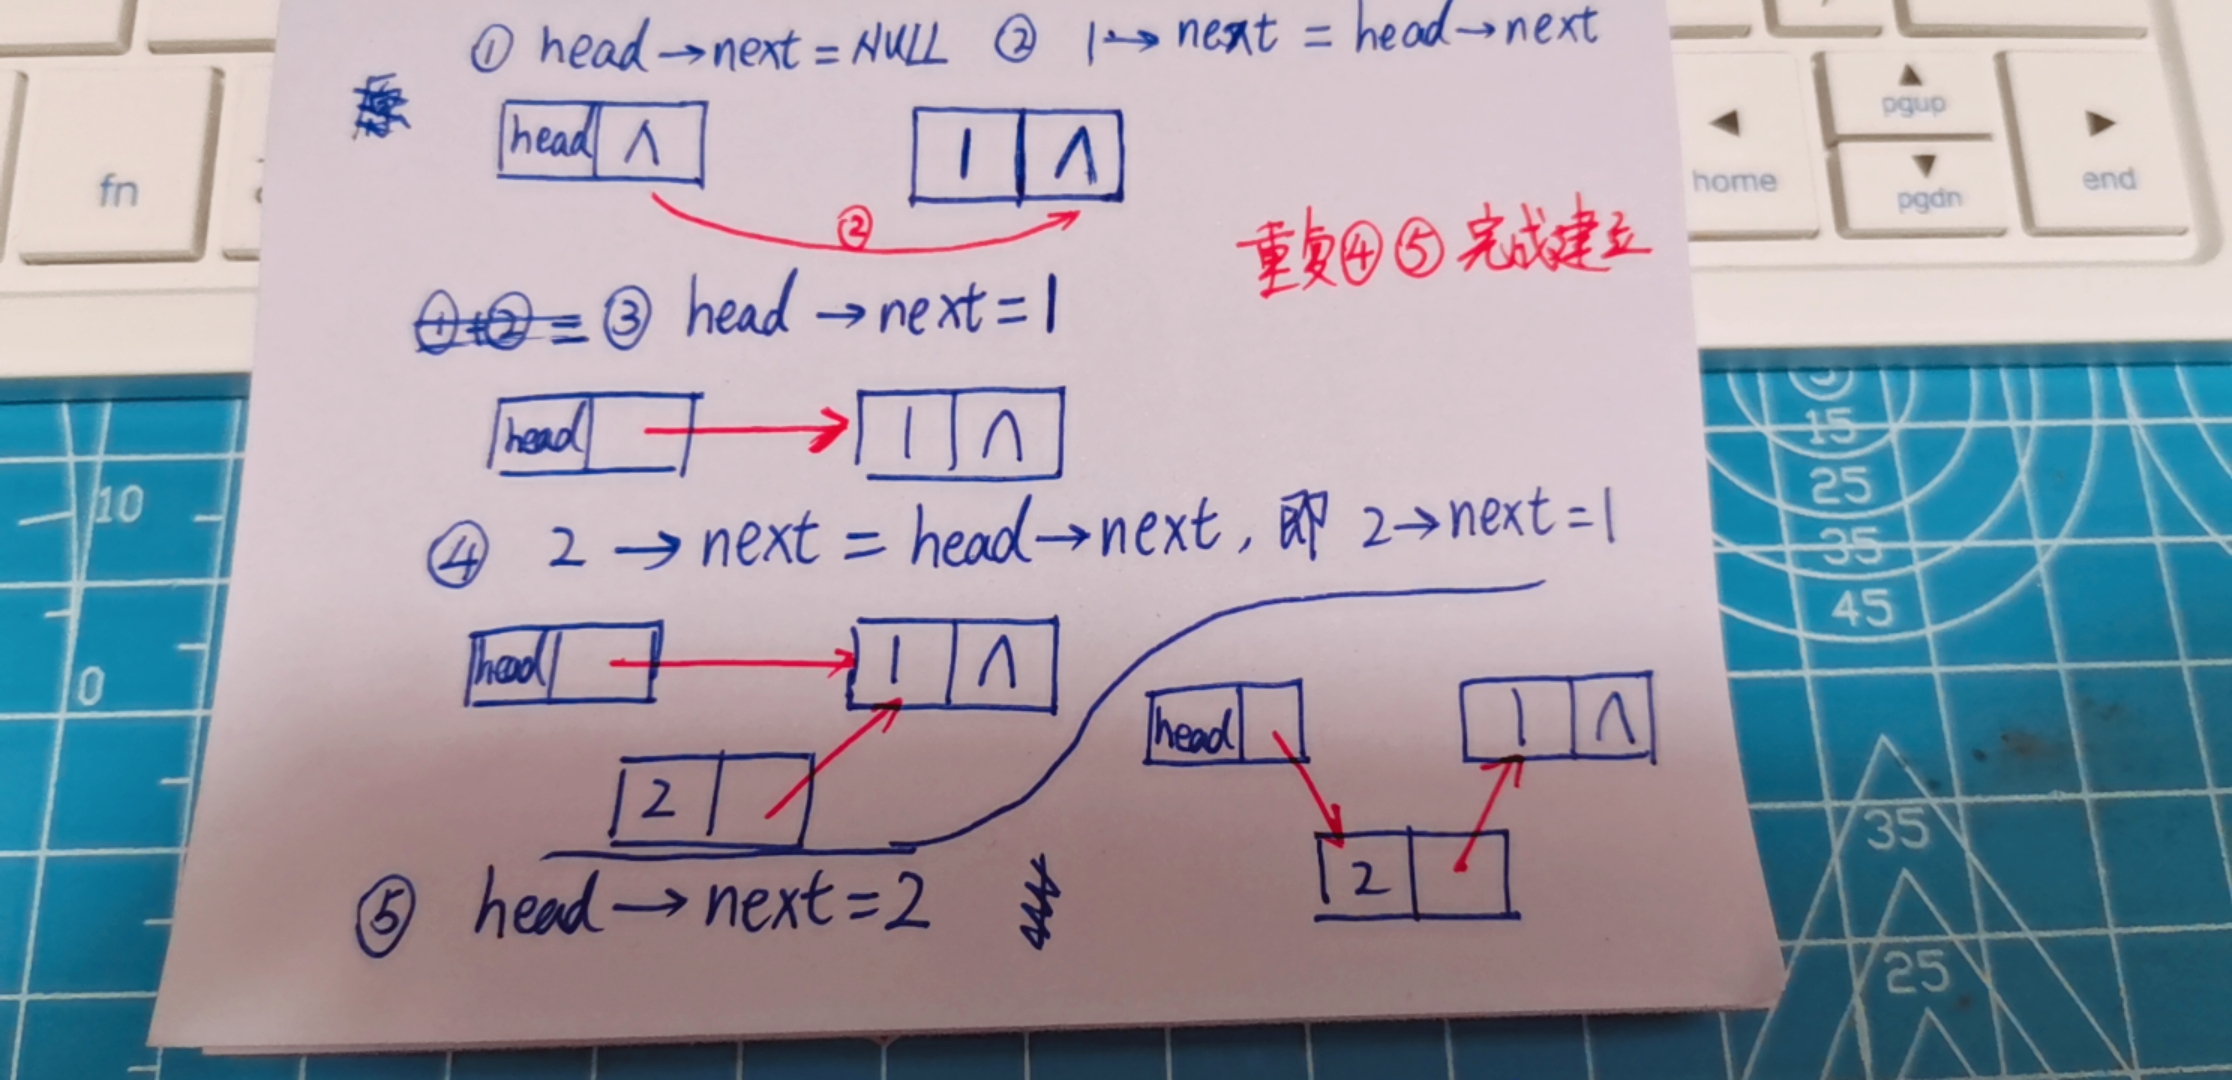 ① head→next=NULL ② 1→next = head→next
head ∧
1 ∧
②
重复④⑤完成建立
①+②= ③ head→next=1
head
1 ∧
④ 2→next = head→next, 即 2→next=1
head
1 ∧
2
head
1 ∧
2
⑤ head→next=2
fn
home
pgup
pgdn
end
10
0
15
25
35
45
35
25